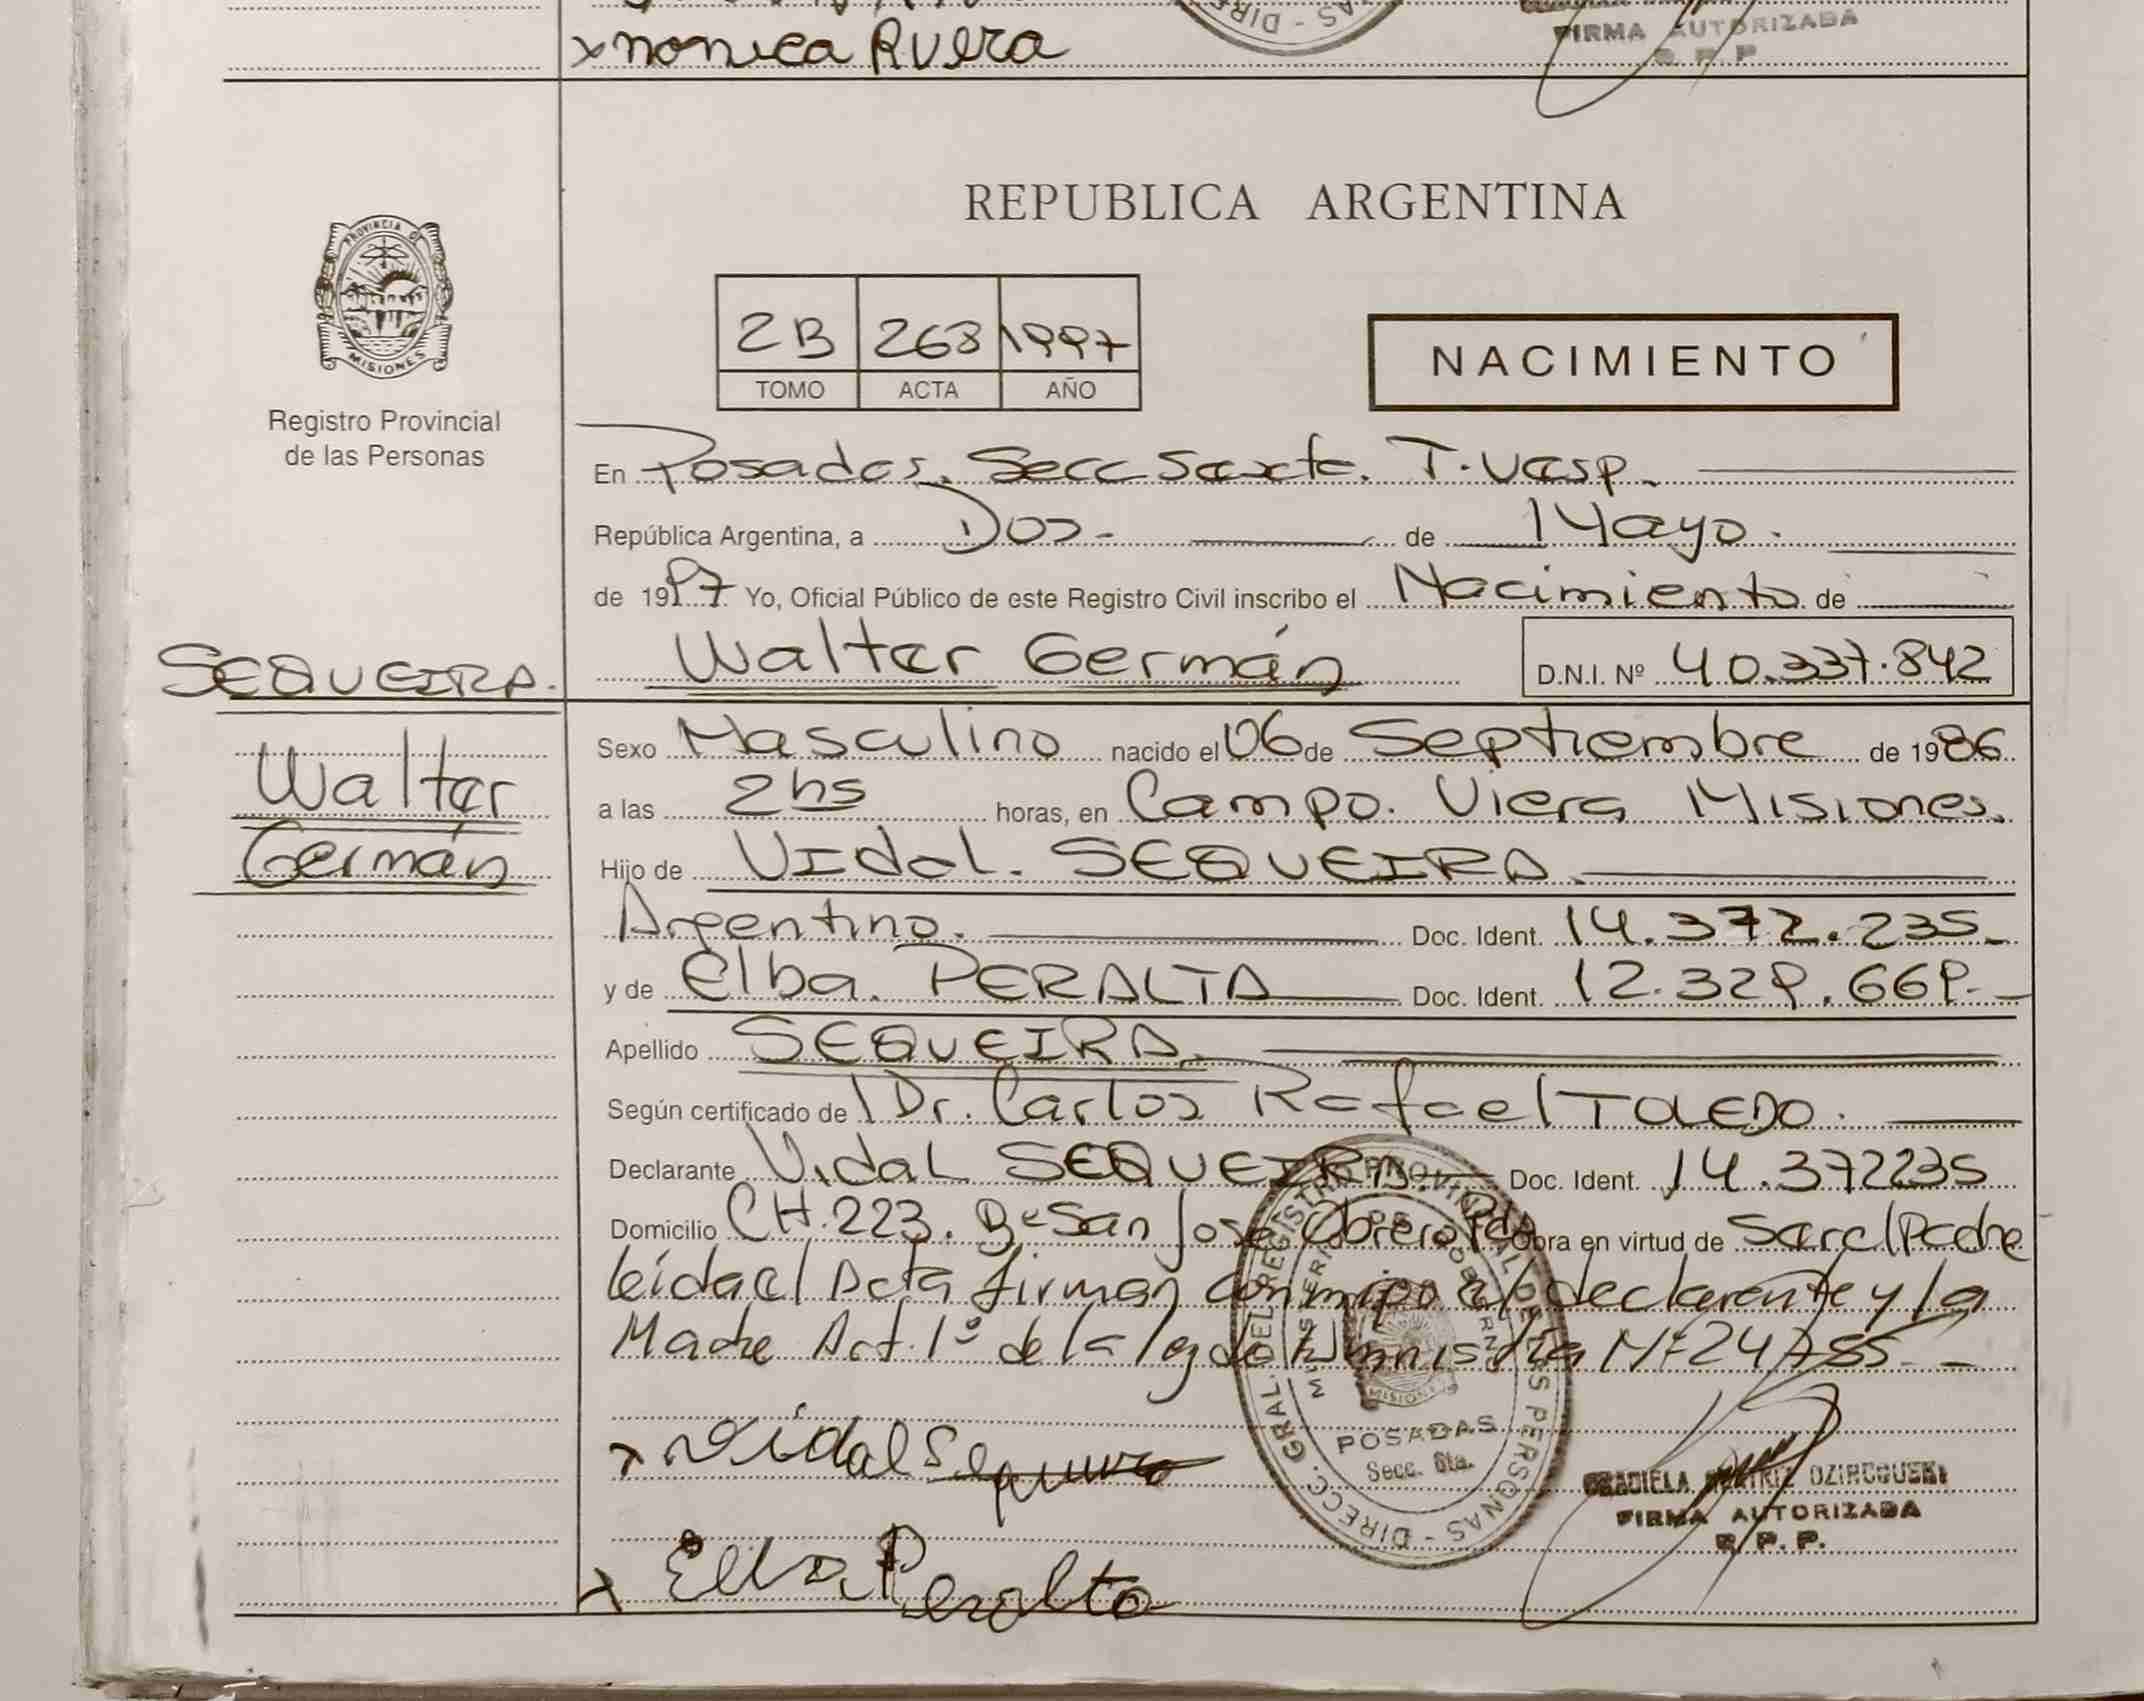 x monica Rvera
FIRMA AUTORIZADA
R. P. P
REPUBLICA ARGENTINA
PROVINCIA DE MISIONES
Registro Provincial
de las Personas
2B 268 1997
TOMO ACTA AÑO
NACIMIENTO
En Posadas. Secc Sexta. T. Vesp.
República Argentina, a Dos - de Mayo.
de 1997 Yo, Oficial Público de este Registro Civil inscribo el Nacimiento de
Walter Germán D.N.I. Nº 40.337.842
SEQUEIRA.
Walter
Germán
Sexo Masculino nacido el 06 de Septiembre de 1986
a las 2 hs horas, en Campo. Viera Misiones.
Hijo de Vidal. SEQUEIRA.
Argentino. Doc. Ident. 14.372.235
y de Elba. PERALTA Doc. Ident. 12.329.669.
Apellido SEQUEIRA.
Según certificado de Dr. Carlos Rafael TOLEDO.
Declarante Vidal SEQUEIRA. Doc. Ident. 14.372235
Domicilio CH. 223. Bº San José Obrero Pdas Obra en virtud de Ser el Padre
leida el Acta firman conmigo el declarante y la
Madre Art. 1º de la ley de Amnistia Nº 24755
DIRECC. GRAL. DEL REGISTRO PROVINCIAL DE LAS PERSONAS
MINISTERIO DE GOBIERNO
MISIONES
POSADAS
Secc. 6ta.
x Vidal Sequeira
GRACIELA BEATRIZ
FIRMA AUTORIZADA
R. P. P.
x Elba Peralta